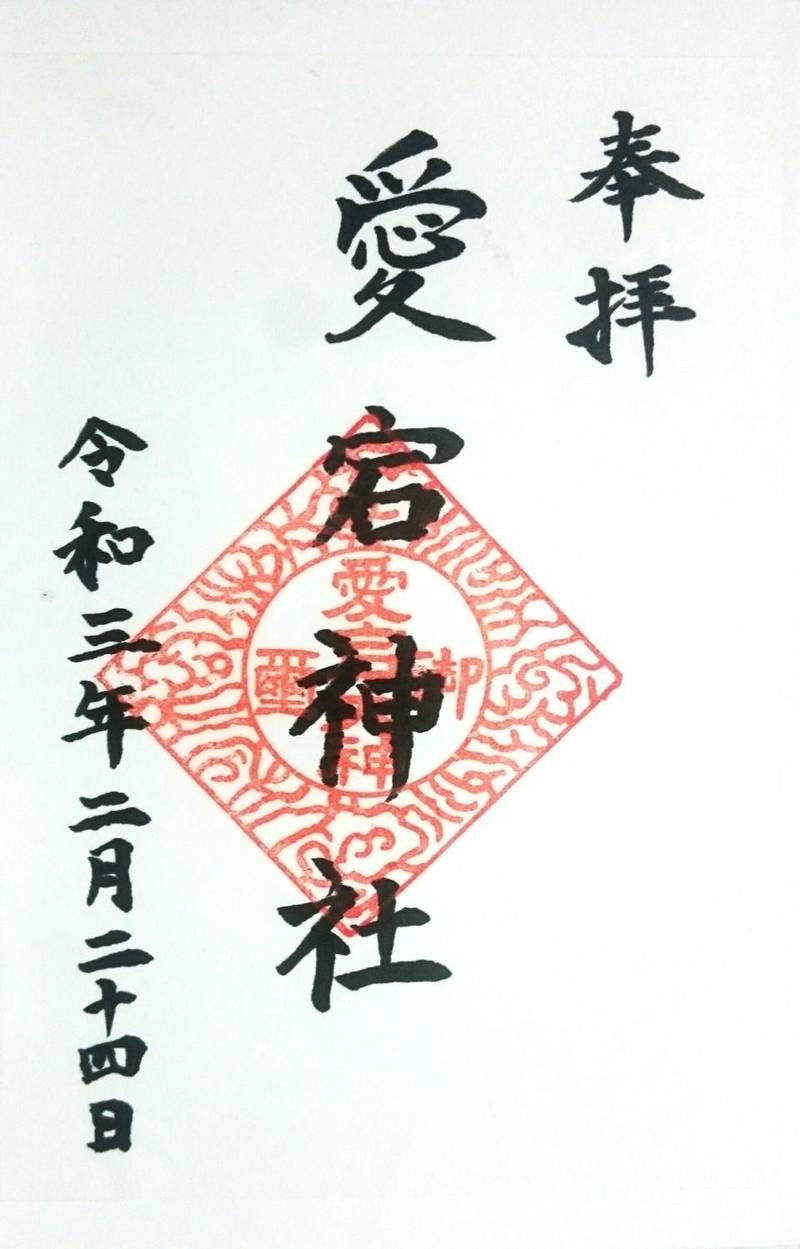 奉拝
愛宕神社
令和三年二月二十四日
愛宕
神
御
璽